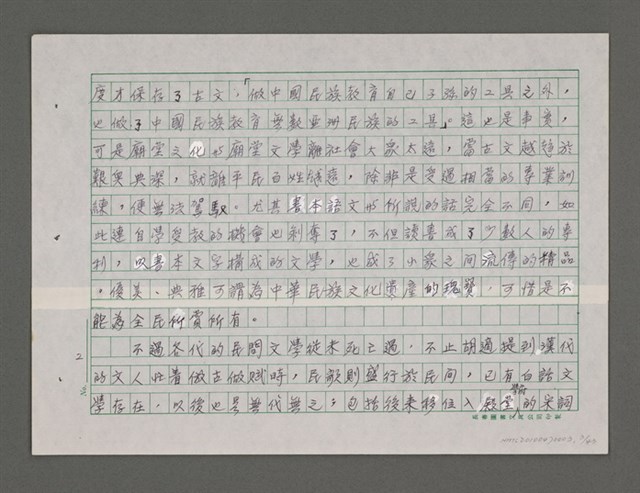 度才保存了古文,「做中國民族教育自己子孫的工具之外,
也做了中國民族教育無數亞洲民族的工具」。這也是事實,
可是廟堂文化的廟堂文學離社會大眾太遠,當古文越趨於
艱奧典深,就離平民百姓越遠,除非是受過相當的專業訓
練,便無法駕馭。尤其書本語文和所說的話完全不同,如
此連自學受教的機會也剝奪了,不但讀書成了少數人的專
利,以書本文字構成的文學,也成了小眾之間流傳的精品
。優美、典雅可謂為中華民族文化遺產的瑰寶,可惜是不
能為全民所賞所有。
不過各代的民間文學從未死亡過,不止胡適提到漢代
的文人忙著做古做賦時,民歌則盛行於民間,已有白話文
學存在,以後也是無代無之;包括後來移位入殿堂的宋詞
2
No.